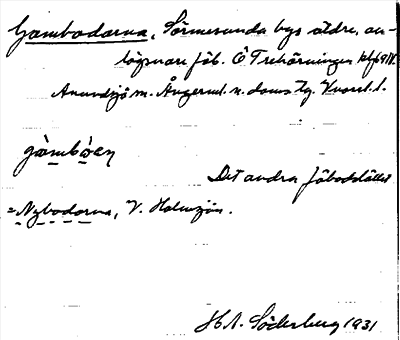 Gambodarna, Sörmesunda bys äldre, av-
lägsnare fäb. Ö Trehörningen
Anundsjö sn. Ångerml. n. doms Tg.
gàmbòen
Det andra fäbodstället
= Nybodarna, V. Holmsjön.
H. Söderberg 1931